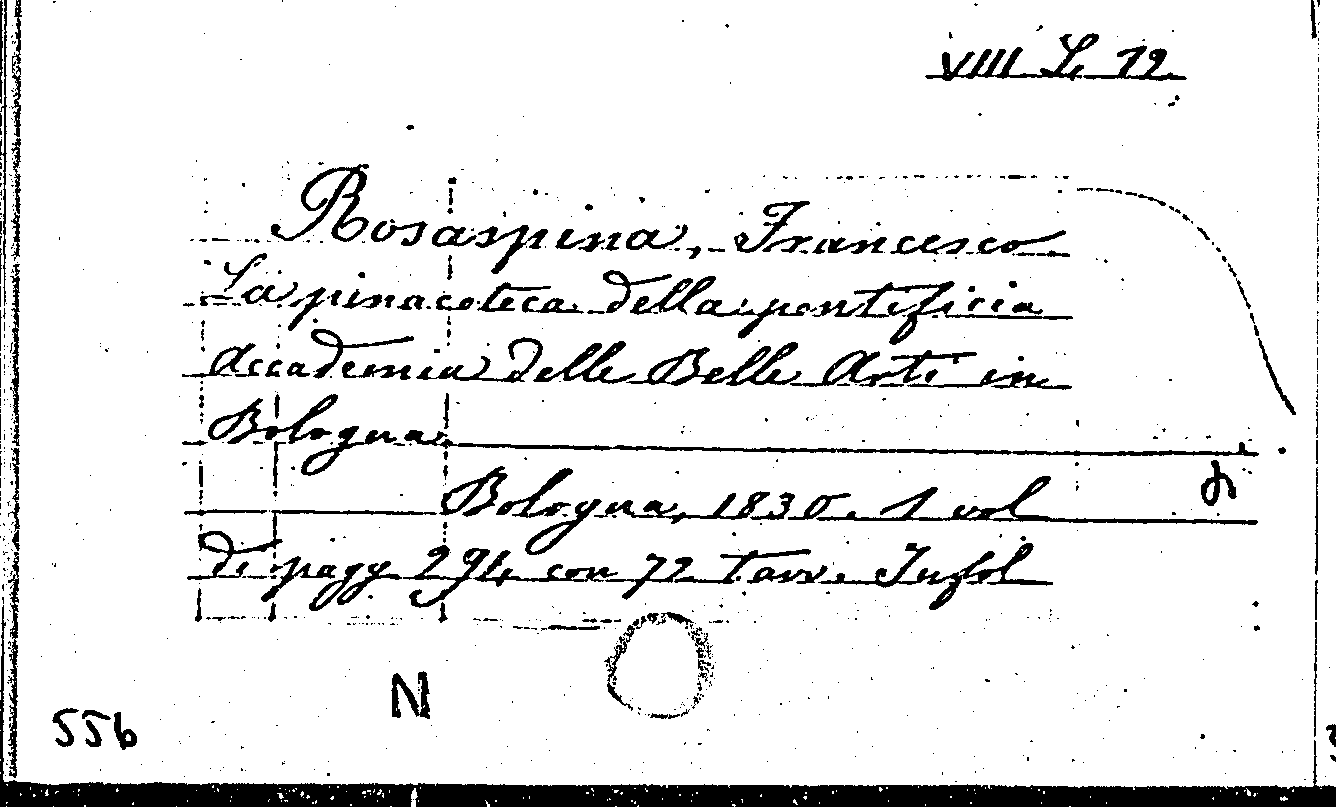 VIII L, 12.
Rosaspina, Francesco
La pinacoteca della pontificia
Accademia delle Belle Arti in
Bologna.
Bologna, 1830. 1 vol
di pagg 294 con 72 tavv. Infol
N
556